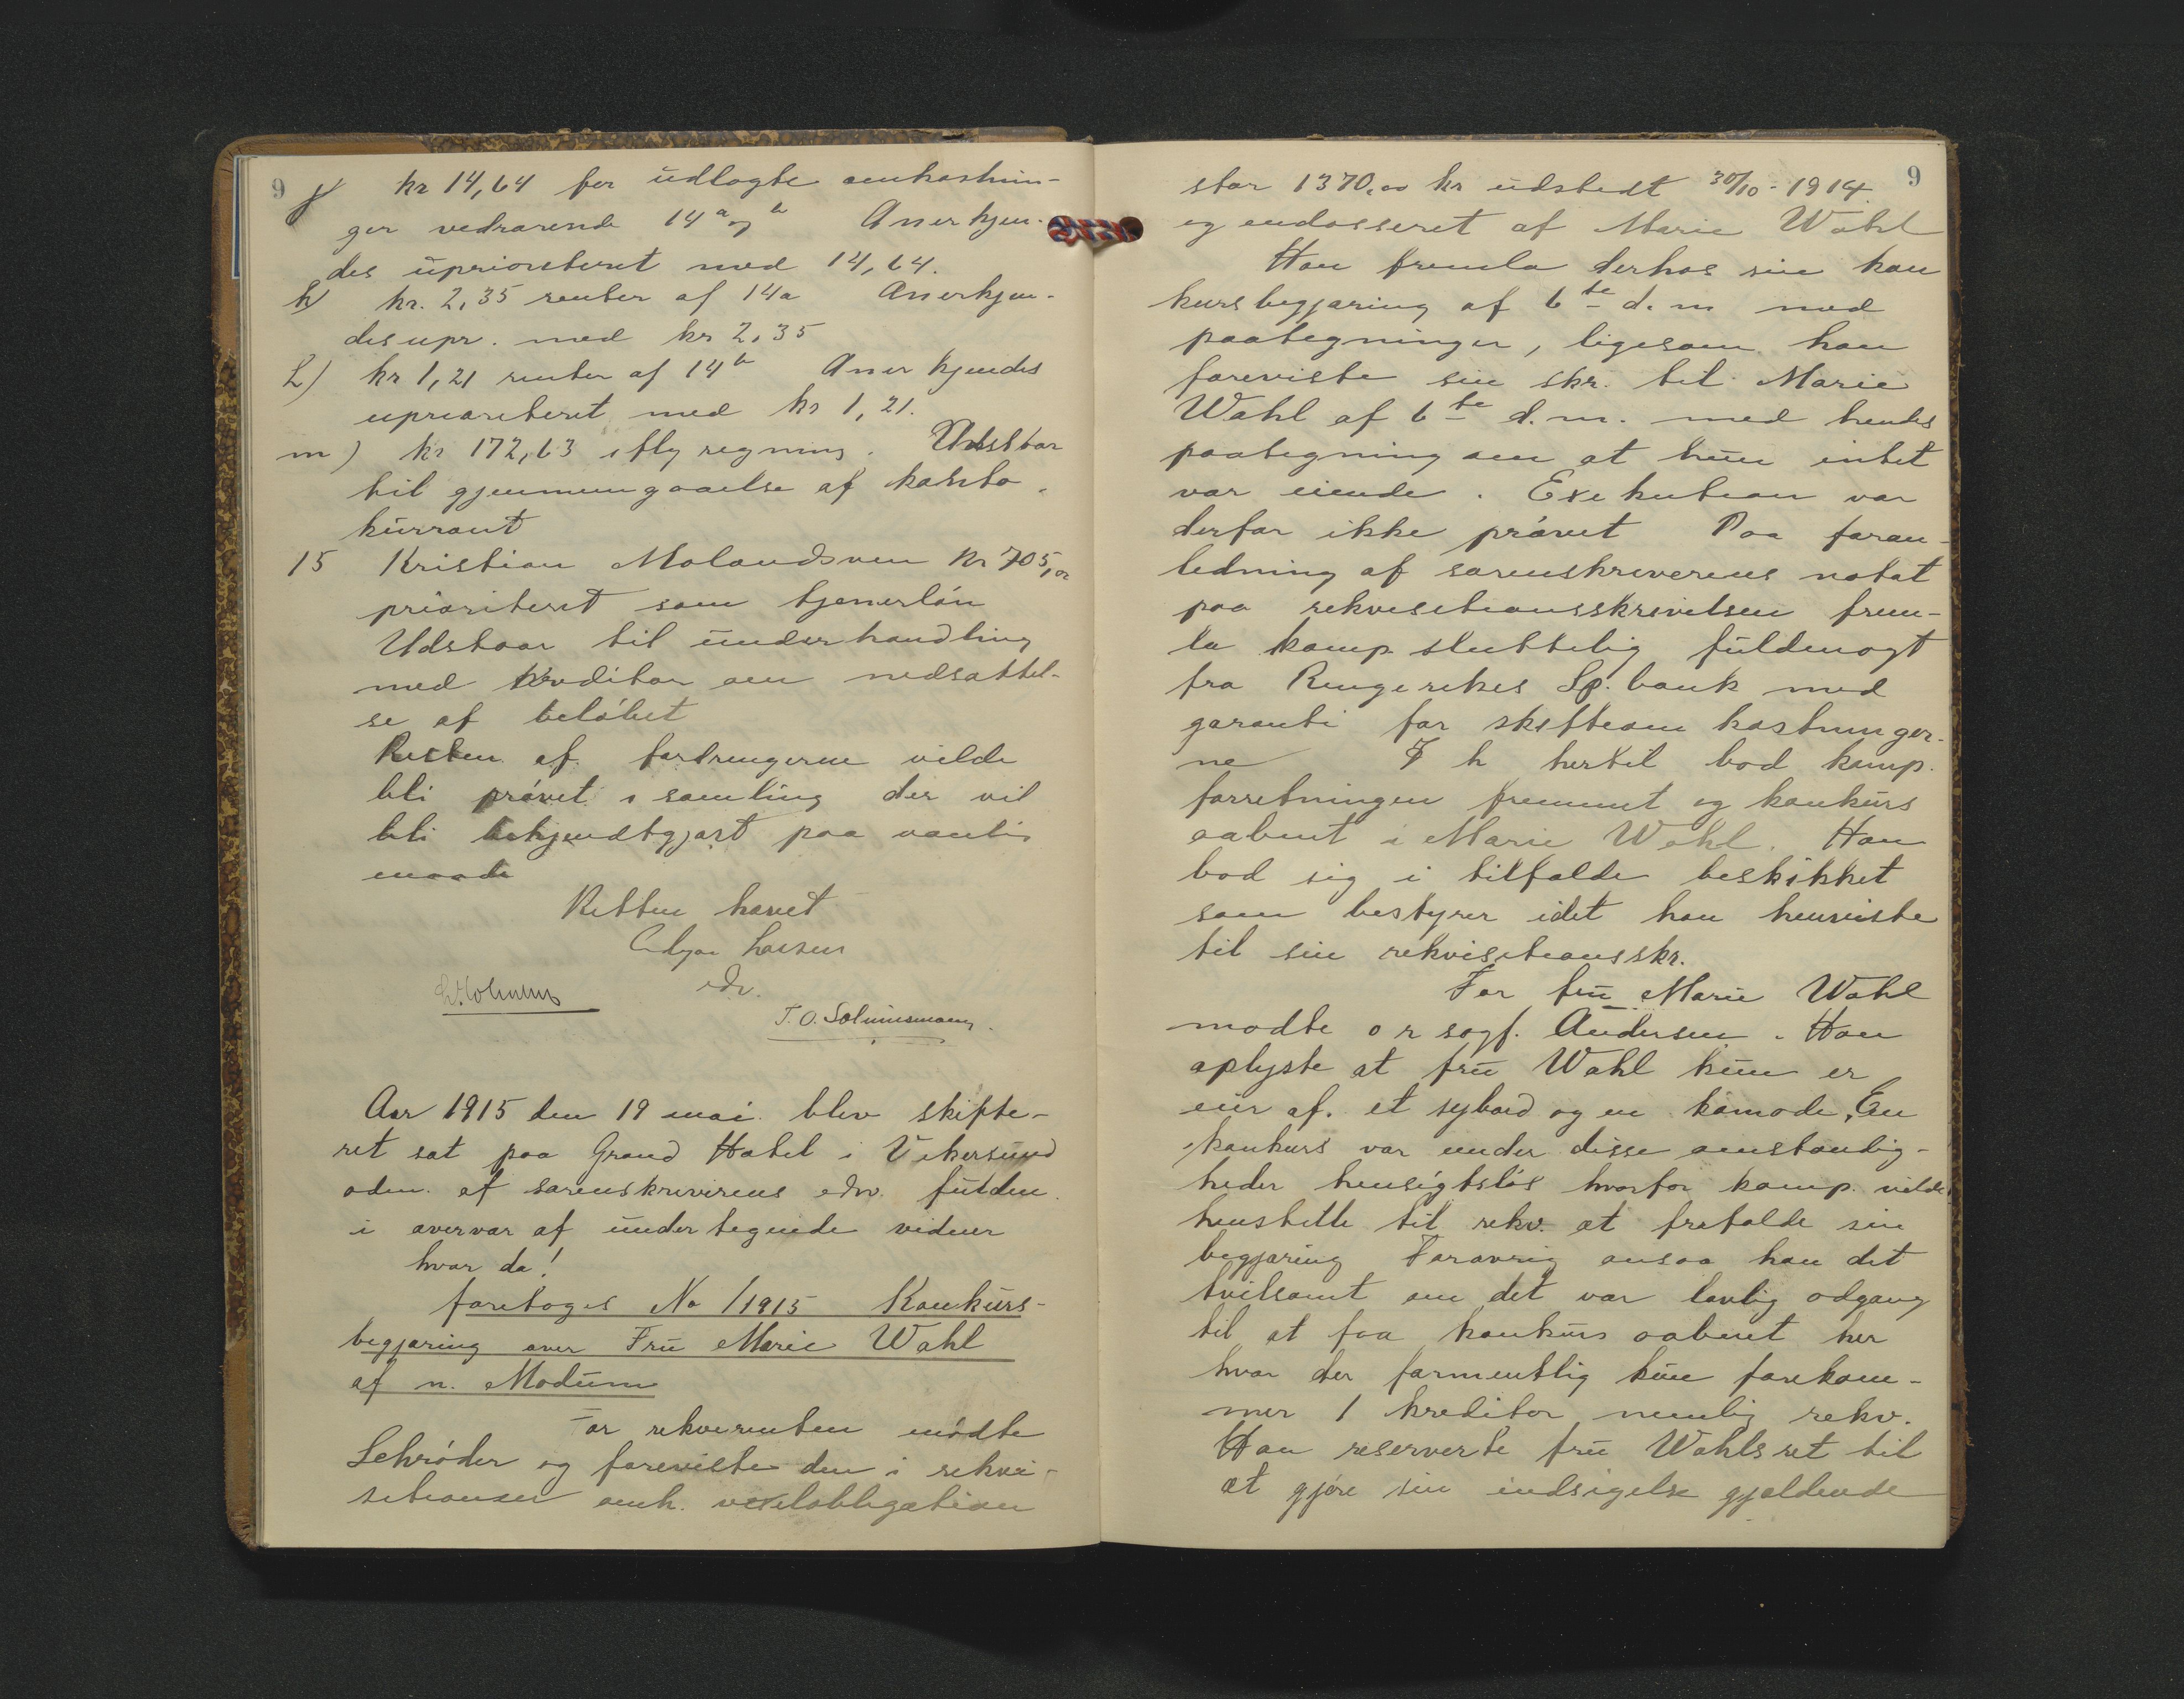 9
j kr 14,64 for udlagte omkostnin-
ger vedrørende 14a og b Anerkjen-
des uprioriteret med 14,64.
k) kr. 2,35 renter af 14a Anerkjen-
des upr. med kr 2,35
L) kr 1,21 renter af 14b Anerkjendes
uprioriteret med kr 1,21.
m) kr 172,63 iflg regning. Udstaar
til gjennemgaaelse af konto-
kurrant
15 Kristian Molandsveen kr 705,00
prioriteret som tjenerløn
Udstaar til underhandling
med kreditor om nedsættel-
se af beløbet
Resten af fordringerne vilde
bli prøvet i samling der vil
bli bekjendtgjort paa vanlig
maade
Retten hævet
Larsen
edv.
T. O. Solumsmoen.
Aar 1915 den 19 mai blev skifte-
ret sat paa Grand Hotel i Vikersund
adm. af sorenskriverens edsv. fuldm.
i overvær af undertegnede vidner
hvor da!
foretoges No 1/1915 Konkurs-
begjæring over Fru Marie Wahl
af n. Modum
For rekvirenten mødte
Schrøder og foreviste den i rekvi-
sitionen omh. vexelobligation
9
stor 1370,00 kr udstedt 30/10-1914
og endosseret af Marie Wahl
Han fremla derhos sin kon
kursbegjæring af 6te d.m med
paategninger, ligesom han
foreviste sin skr. til Marie
Wahl af 6te d.m. med hendes
paategning om at hun intet
var eiende. Exekution var
derfor ikke prøvet Paa foran-
ledning af sorenskriverens notat
paa rekvisitionsskrivelsen frem-
la komp. sluttelig fuldmagt
fra Ringerikes Sp.bank med
garanti for skifteomkostninger-
ne I h hertil bad komp.
forretningen fremmet og konkurs
aabnet i Marie Wahl. Han
bad sig i tilfælde beskikket
som bestyrer idet han henviste
til sin rekvisitionsskr.
For fru Marie Wahl
mødte o r sagf. Andersen. Han
oplyste at fru Wahl kun er
eier af. et sybord og en komode, En
konkurs var under disse omstændig-
heder hensigtsløs hvorfor komp. vilde
henstille til rekv. at frafalde sin
begjæring Forøvrig ansaa han det
tvilsomt om det var lovlig adgang
til at faa konkurs aabnet her
hvor der formentlig kun forekom-
mer 1 kreditor nemlig rekv.
Han reserverte fru Wahls ret til
at gjøre sin indsigelse gjældende